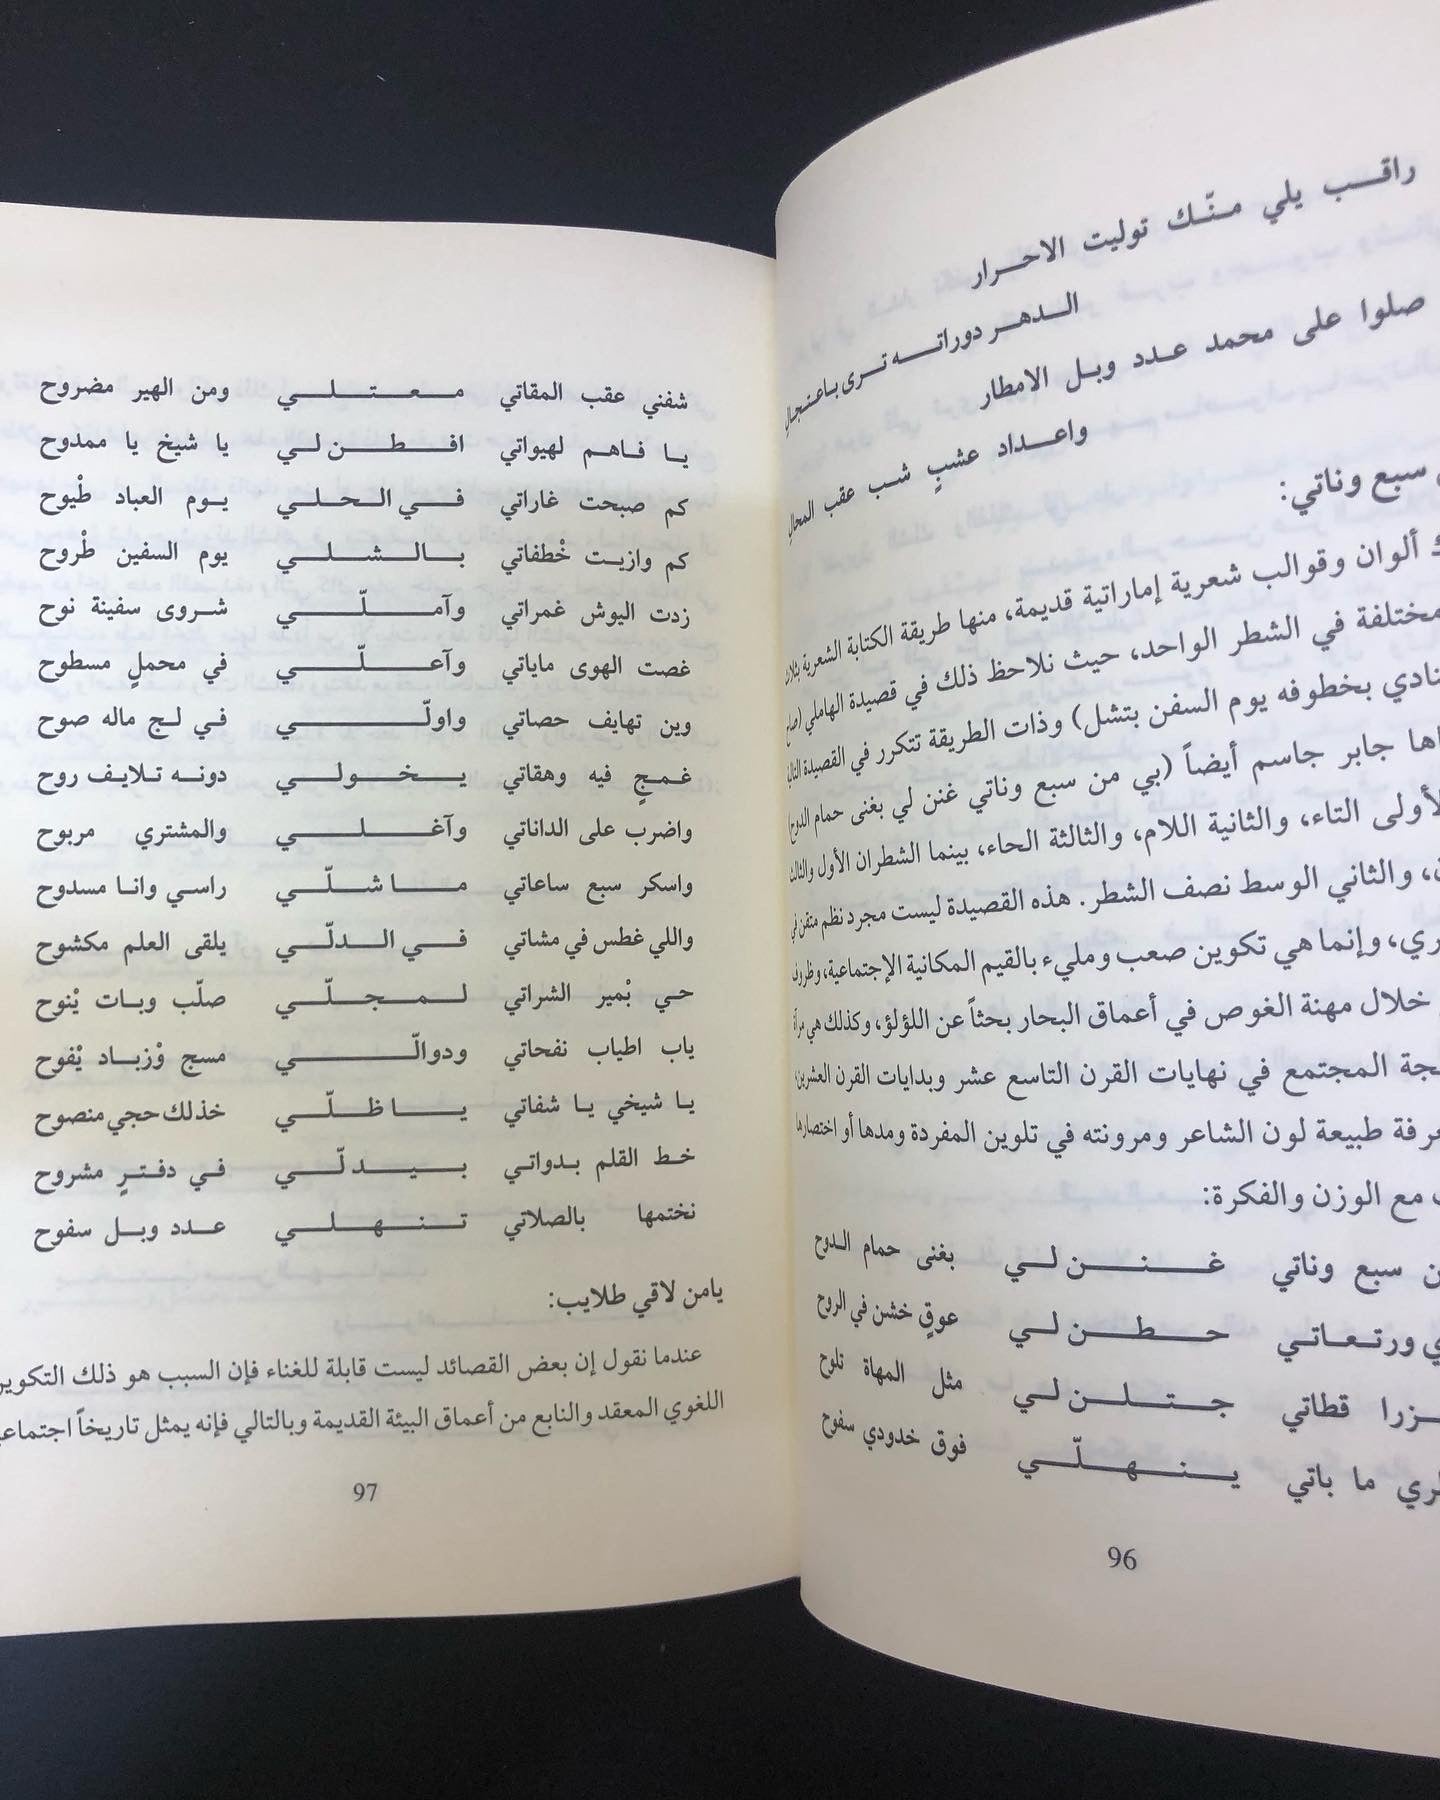 راقب يلي منّك توليت الاحرار
الدهر دوراته ترى باعتجال
صلوا على محمد عدد وبل الامطار
واعداد عشبٍ شب عقب المحال
سبع وناتي:
ألوان وقوالب شعرية إماراتية قديمة، منها طريقة الكتابة الشعرية بثلاث
مختلفة في الشطر الواحد، حيث نلاحظ ذلك في قصيدة الهاملي (صاح
بخطوفه يوم السفن بتشل) وذات الطريقة تتكرر في القصيدة التالية
جابر جاسم أيضاً (بي من سبع وناتي غنن لي بغنى حمام الدوح)
الأولى التاء، والثانية اللام، والثالثة الحاء، بينما الشطران الأول والثالث
والثاني الوسط نصف الشطر. هذه القصيدة ليست مجرد نظم متقن في
وإنما هي تكوين صعب ومليء بالقيم المكانية الإجتماعية، وظروف
خلال مهنة الغوص في أعماق البحار بحثاً عن اللؤلؤ، وكذلك هي مرآة
المجتمع في نهايات القرن التاسع عشر وبدايات القرن العشرين،
طبيعة لون الشاعر ومرونته في تلوين المفردة ومدها أو اختصارها
مع الوزن والفكرة:
سبع وناتي غنن لي بغنى حمام الدوح
ورتعاتي حطن لي عوقٍ خشن في الروح
قطاتي جتلن لي مثل المهاة تلوح
ما باتي ينهلّي فوق خدودي سفوح
96
شفني عقب المقاتي معتلي ومن الهير مضروح
يا فاهم لهيواتي افطن لي يا شيخ يا ممدوح
كم صبحت غاراتي في الحلي يوم العباد طْيوح
كم وازيت خْطفاتي بالشلي يوم السفين طْروح
زدت اليوش غمراتي وآملّي شروى سفينة نوح
غصت الهوى ماياتي وآعلّي في محملٍ مسطوح
وين تهايف حصاتي واولّي في لج ماله صوح
غمجٍ فيه وهقاتي يخولي دونه تلايف روح
واضرب على الداناتي وآغلي والمشتري مربوح
واسكر سبع ساعاتي ما شلّي راسي وانا مسدوح
واللي غطس في مشاتي في الدلّي يلقى العلم مكشوح
حي بْمير الشراتي لمجلّي صلّب وبات يْنوح
ياب اطياب نفحاتي ودوالّي مسج وْزباد يْفوح
يا شيخي يا شفاتي يا ظلّي خذلك حجي منصوح
خط القلم بدواتي بيدلّي في دفترٍ مشروح
نختمها بالصلاتي تنهلي عدد وبل سفوح
يامن لاقي طلايب:
عندما نقول إن بعض القصائد ليست قابلة للغناء فإن السبب هو ذلك التكوين
اللغوي المعقد والنابع من أعماق البيئة القديمة وبالتالي فإنه يمثل تاريخاً
97